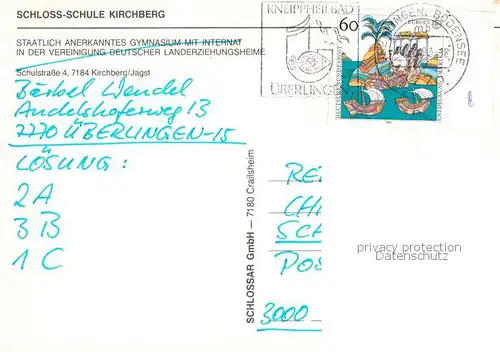 SCHLOSS-SCHULE KIRCHBERG
STAATLICH ANERKANNTES GYMNASIUM MIT INTERNAT
IN DER VEREINIGUNG DEUTSCHER LANDERZIEHUNGSHEIME
Schulstraße 4, 7184 Kirchberg/Jagst
Bärbel Wendel
Andelshoferweg 13
7770 ÜBERLINGEN-15
LÖSUNG:
2A
3B
1C
KNEIPPHEILBAD
ÜBERLINGEN
60
EUROPA
BODENSEE
DEUTSCHE BUNDESPOST
SCHLOSSAR GmbH — 7180 Crailsheim
CHI
SCH
POS
3000
privacy protection
watermark